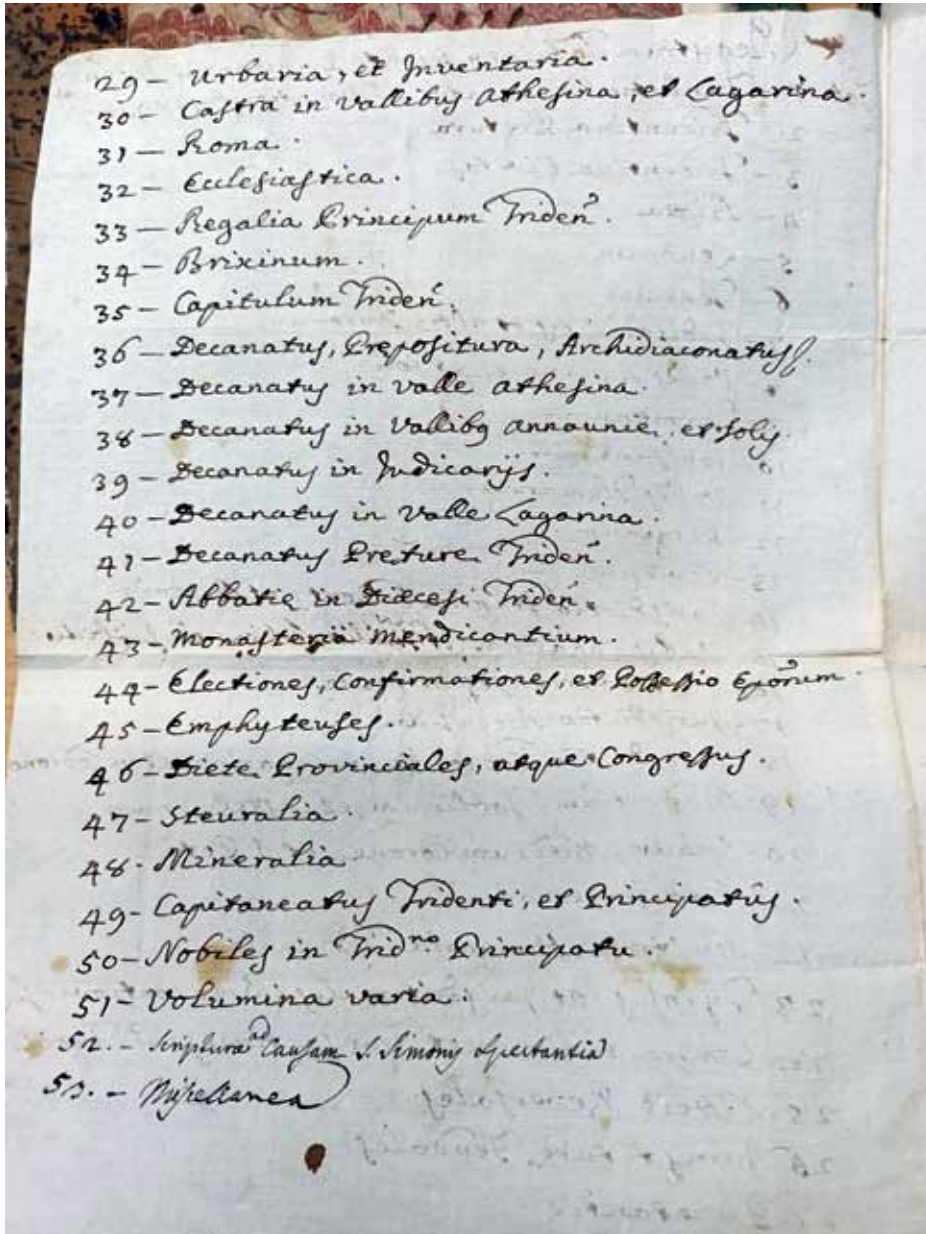 29 – Urbaria, et Inventaria.
30 – Castra in Vallibus Athesina, et Lagarina.
31 – Roma.
32 – Ecclesiastica.
33 – Regalia Principum Triden̄.
34 – Brixinum.
35 – Capitulum Triden̄.
36 – Decanatus, Prępositura, Archidiaconatus.
37 – Decanatus in Valle Athesina.
38 – Decanatus in Vallibꝫ Annaunię, et Solis.
39 – Decanatus in Judicarijs.
40 – Decanatus in Valle Lagarina.
41 – Decanatus Pręturę Triden̄.
42 – Abbatię in Diæcesi Triden̄.
43 – Monasteria Mendicantium.
44 – Electiones, Confirmationes, et Possessio Epōrum.
45 – Emphyteuses.
46 – Dietę Provinciales, atque Congressus.
47 – Steuralia.
48 . Mineralia
49 – Capitaneatus Tridenti, et Principatûs.
50 – Nobiles in Trid.no Principatu.
51 – Volumina varia.
52. – Scripturæ ad Causam S. Simonis Spectantia
53. – Miscellanea